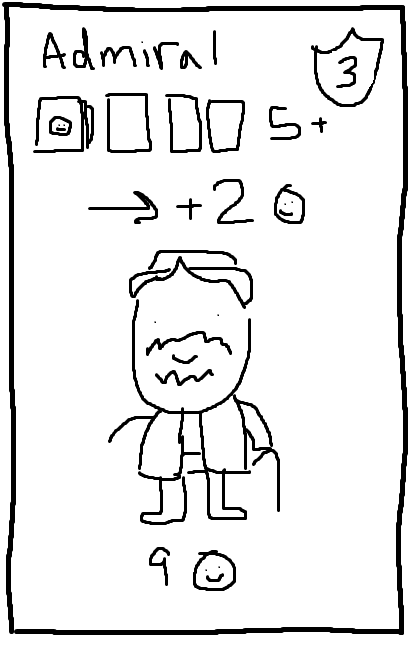 Admiral
3
5+
+2
9